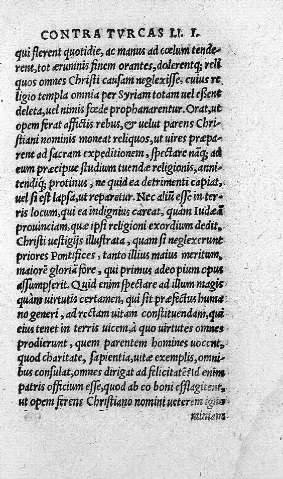 CONTRA TVRCAS LI. I.
qui flerent quotidie, ac manus ad cœlum tende-
rent, tot ærumnis finem orantes, dolerentq; reli
quos omnes Christi causam neglexisse: cuius re
ligio templa omnia per Syriam totam uel essent
deleta, uel nimis fœde prophanarentur. Orat, ut
opem ferat afflictis rebus, & uelut parens Chri
stiani nominis moneat reliquos, ut uires præpa-
rent ad sacram expeditionem, spectare nāq; ad
eum præcipue studium tuendæ religionis, anni-
tendiq; protinus, ne quid ea detrimenti capiat,
uel si est lapsa, ut reparetur. Nec aliū esse in ter-
ris locum, qui ea indignius careat, quàm Iudæā
prouinciam, quæ ipsi religioni exordium dedit,
Christi uestigijs illustrata, quam si neglexerunt
priores Pontifices, tanto illius maius meritum,
maiorē gloriā fore, qui primus adeo pium opus
assumpserit. Quid enim spectare ad illum magis
quàm uirtutis certamen, qui sit præfectus huma
no generi, ad rectam uitam constituendam, qui
eius tenet in terris uicem, à quo uirtutes omnes
prodierunt, quem parentem homines uocent,
quod charitate, sapientia, uitæ exemplis, omni-
bus consulat, omnes dirigat ad felicitatē: Id enim
patris officium esse, quod ab eo boni efflagitent,
ut opem ferens Christiano nomini ueterem